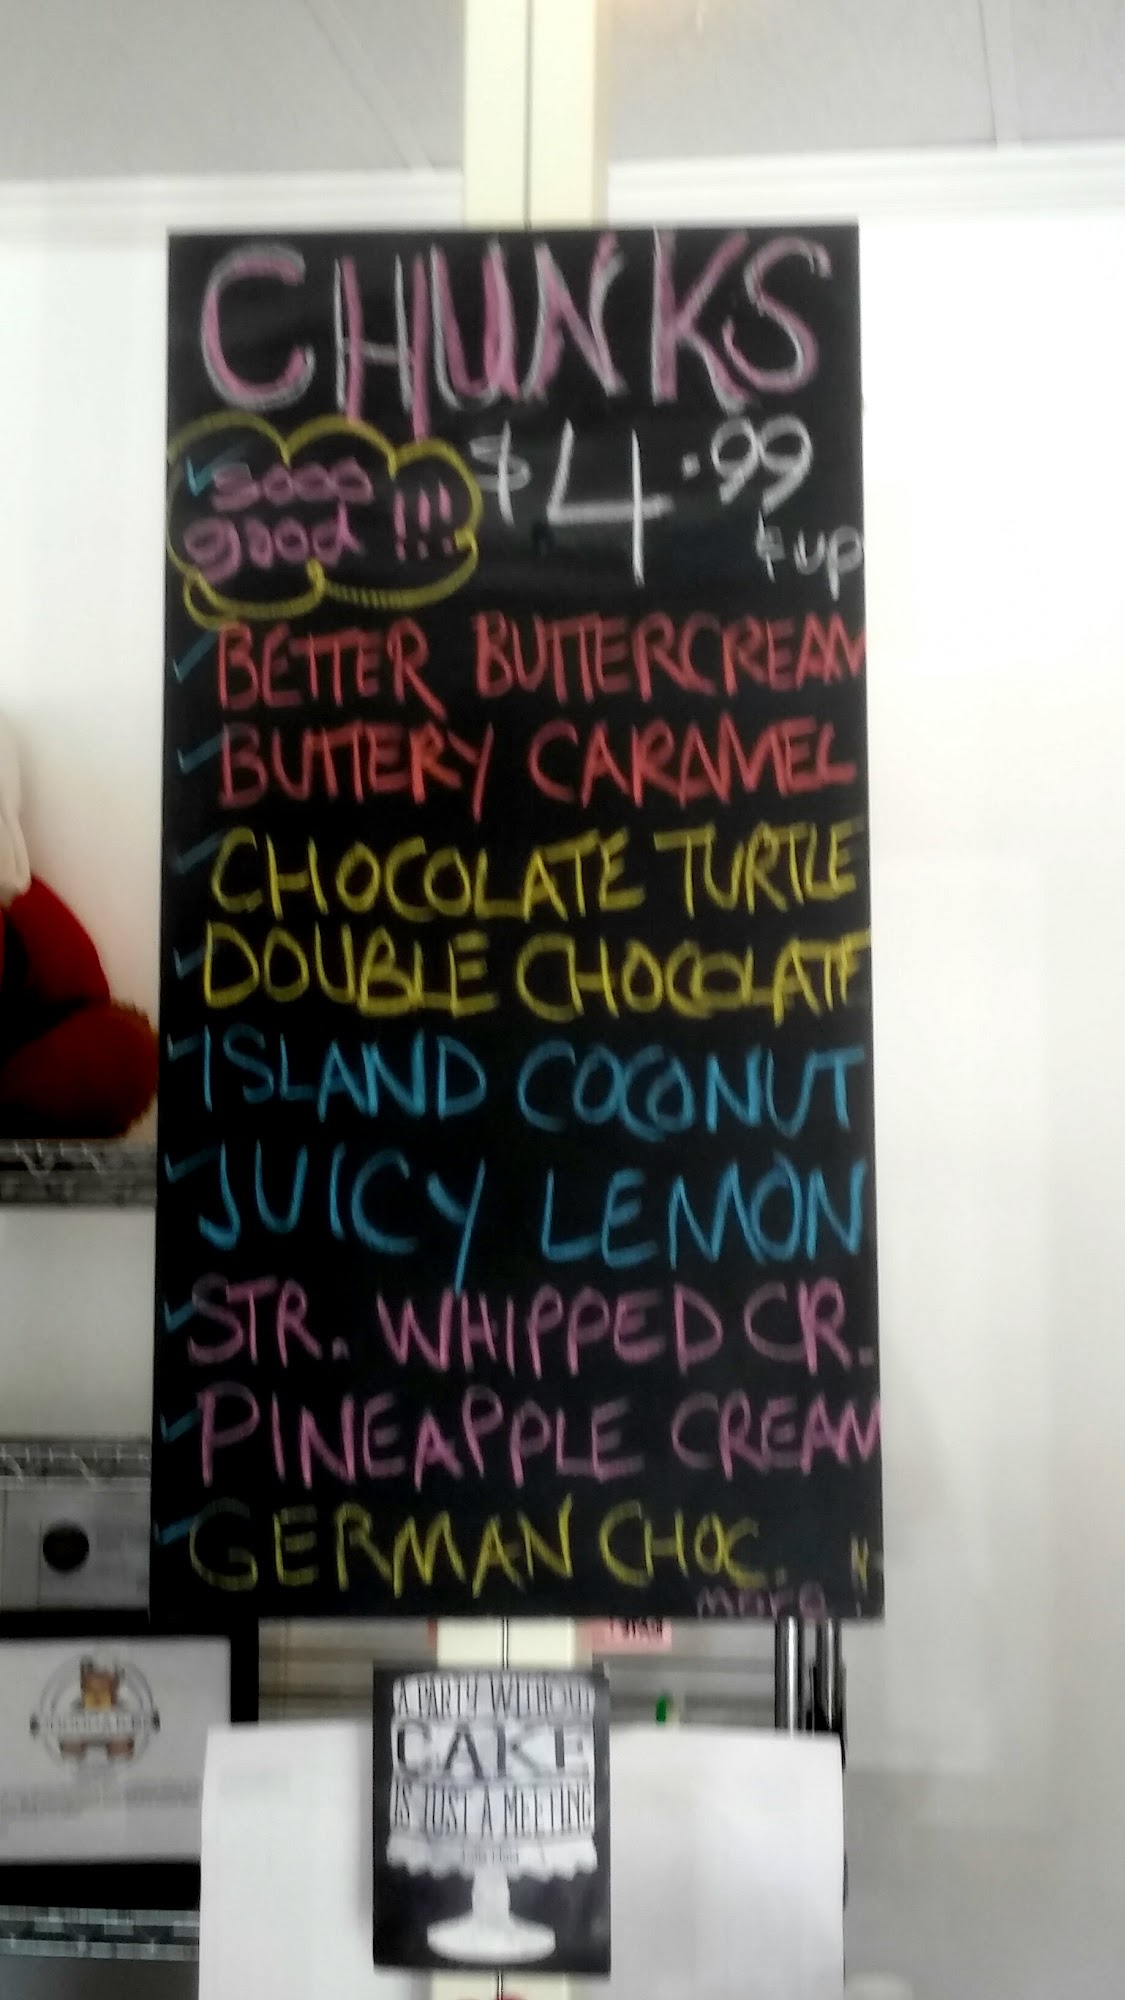 CHUNKS
$4.99
& up
sooo
good !!!
BETTER BUTTERCREAM
BUTTERY CARAMEL
CHOCOLATE TURTLE
DOUBLE CHOCOLATE
ISLAND COCONUT
JUICY LEMON
STR. WHIPPED CR.
PINEAPPLE CREAM
GERMAN CHOC.
more
A PARTY WITHOUT
CAKE
IS JUST A MEETING